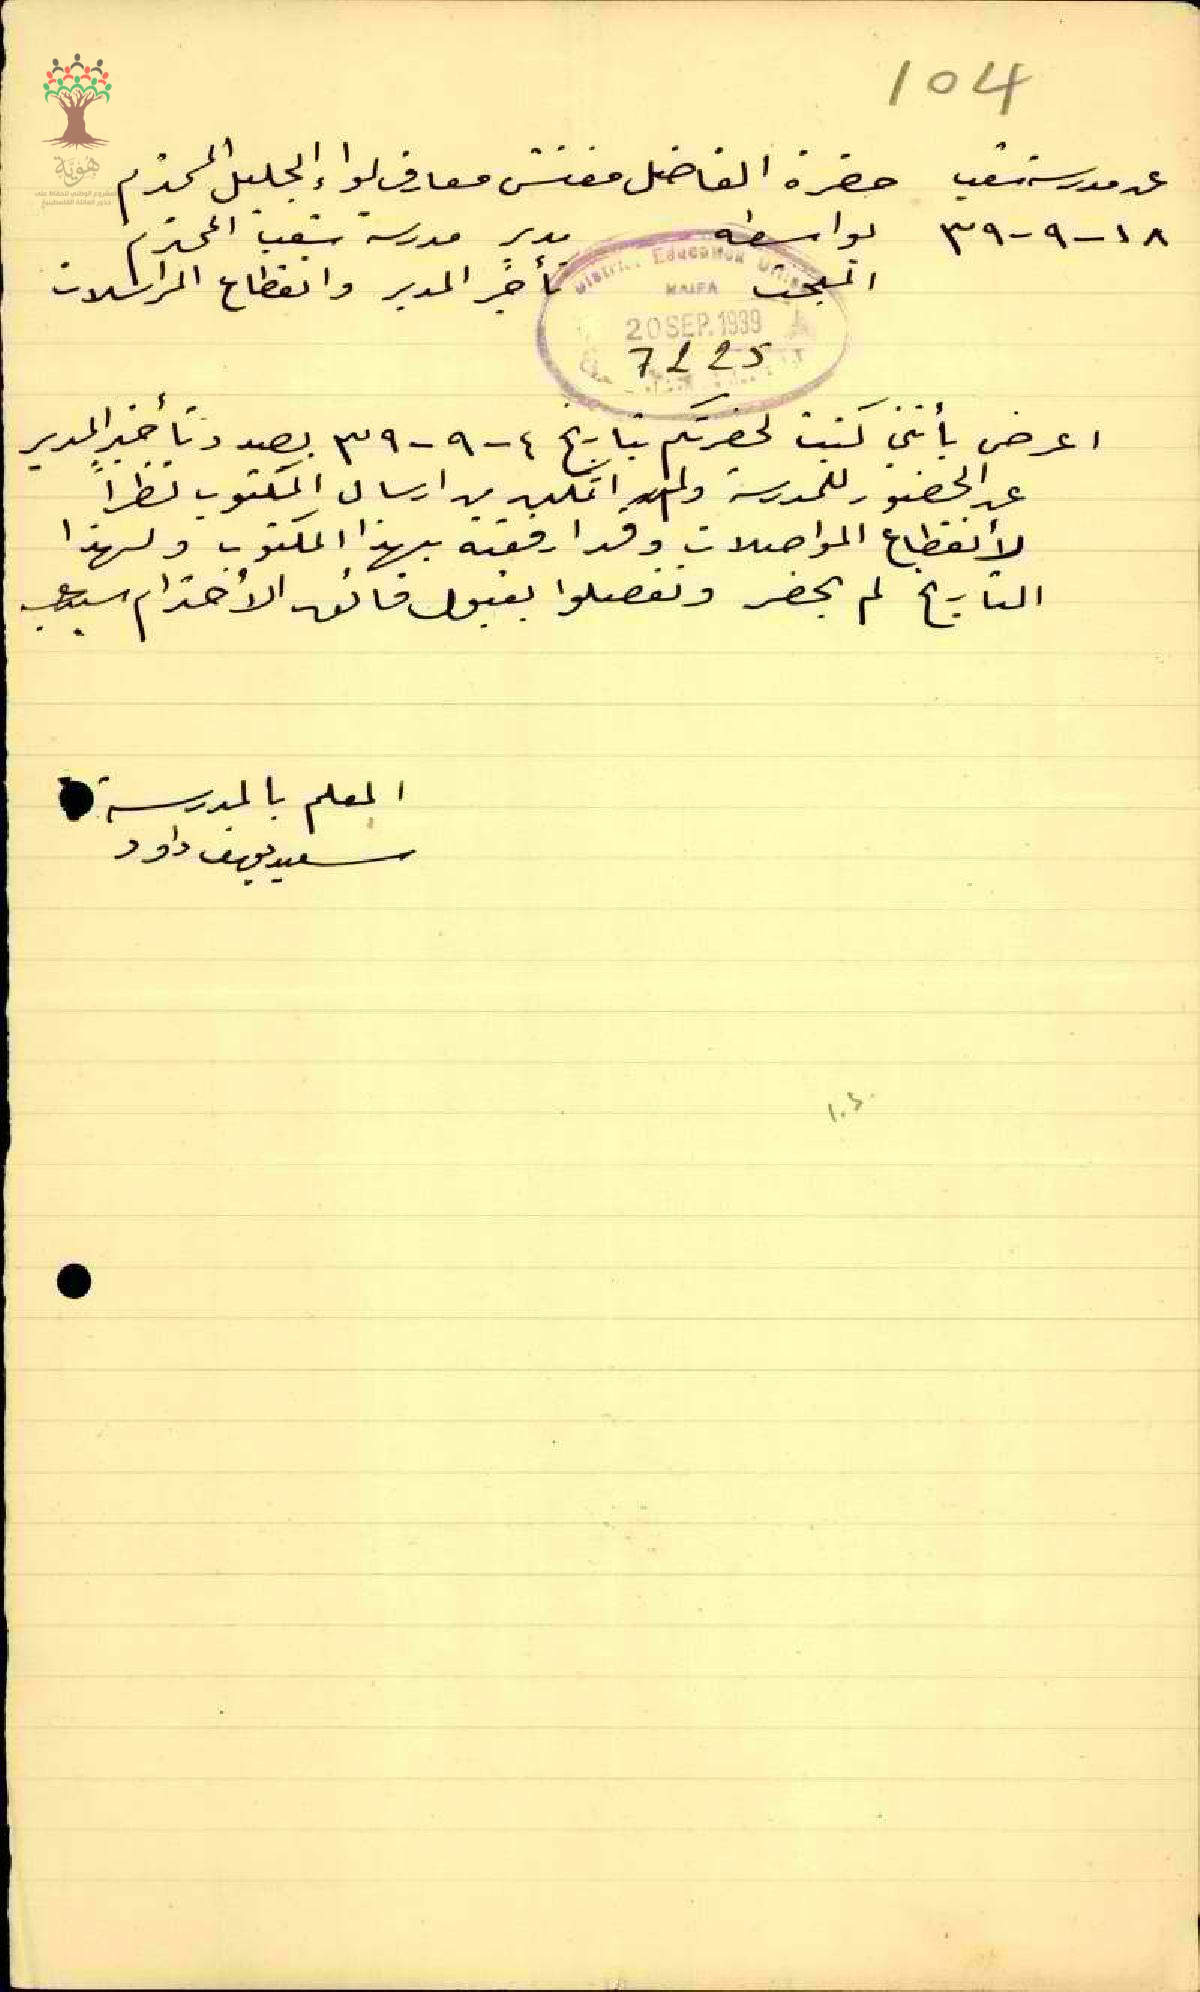 104
عن مدرسة شعب حضرة الفاضل مفتش معارف لواء الجليل المحترم
١٨-٩-٣٩ بواسطة مدير مدرسة شعب المحترم
المبحث تأخير المدير وانقطاع المراسلات
District Education Office
HAIFA
20 SEP. 1939
7225
اعرض بأنني كتبت لحضرتكم بتاريخ ٤-٩-٣٩ بصدد تأخير المدير
عن الحضور للمدرسة ولم اتمكن من ارسال المكتوب نظراً
لأنقطاع المواصلات وقد ارفقته بهذا المكتوب ولهذا
التاريخ لم يحضر وتفضلوا بقبول فائق الأحترام سيدي
المعلم بالمدرسة
سعيد يوسف داود
هُوِيَّة
المشروع الوطني للحفاظ على
جذور العائلة الفلسطينية